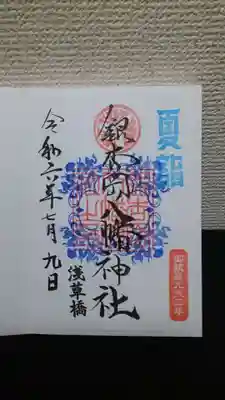 夏詣
銀杏岡八幡神社
浅草橋
令和六年七月九日
御鎮座九六二年